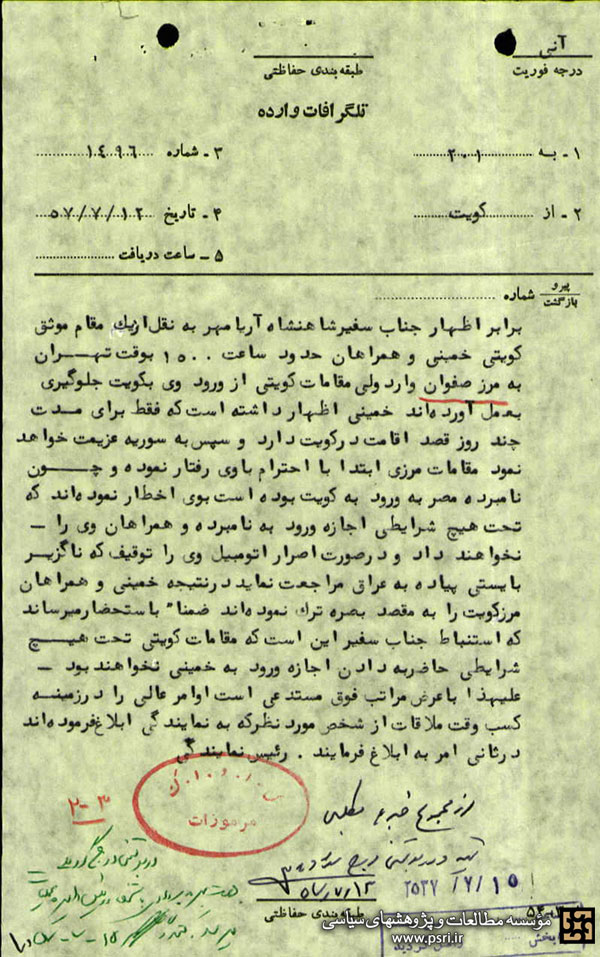 آنی
درجه فوریت
طبقه بندی حفاظتی
تلگرافات وارده
۱ - به ۲۰۱
۳ - شماره ۱۴۹۶
۲ - از کویت
۴ - تاریخ ۵۷/۷/۱۲
۵ - ساعت دریافت
پیرو
بازگشت
شماره
برابر اظهار جناب سفیر شاهنشاه آریامهر به نقل از یک مقام موثق
کویتی خمینی و همراهان حدود ساعت ۱۵۰۰ بوقت تهران
به مرز صفوان وارد ولی مقامات کویتی از ورود وی بکویت جلوگیری
بعمل آورده‌اند خمینی اظهار داشته است که فقط برای مدت
چند روز قصد اقامت در کویت دارد و سپس به سوریه عزیمت خواهد
نمود مقامات مرزی ابتدا با احترام باوی رفتار نموده و چون
نامبرده مصر به ورود به کویت بوده است بوی اخطار نموده‌اند که
تحت هیچ شرایطی اجازه ورود به نامبرده و همراهان وی را -
نخواهند داد و در صورت اصرار اتومبیل وی را توقیف که ناگزیر
بایستی پیاده به عراق مراجعت نماید در نتیجه خمینی و همراهان
مرز کویت را به مقصد بصره ترک نموده‌اند ضمنا" باستحضار میرساند
که استنباط جناب سفیر این است که مقامات کویتی تحت هیچ
شرایطی حاضر به دادن اجازه ورود به خمینی نخواهند بود -
علیهذا باعرض مراتب فوق مستدعی است اوامر عالی را در زمینه
کسب وقت ملاقات از شخص مورد نظر که به نمایندگی ابلاغ فرموده‌اند
در ثانی امر به ابلاغ فرمایند . رئیس نمایندگی
مرموزات
۳-۲
۵۷/۷/۱۲
۲۵۳۷/۷/۱۵
طبقه بندی حفاظتی
مؤسسه مطالعات و پژوهشهای سیاسی
www.psri.ir
بخش